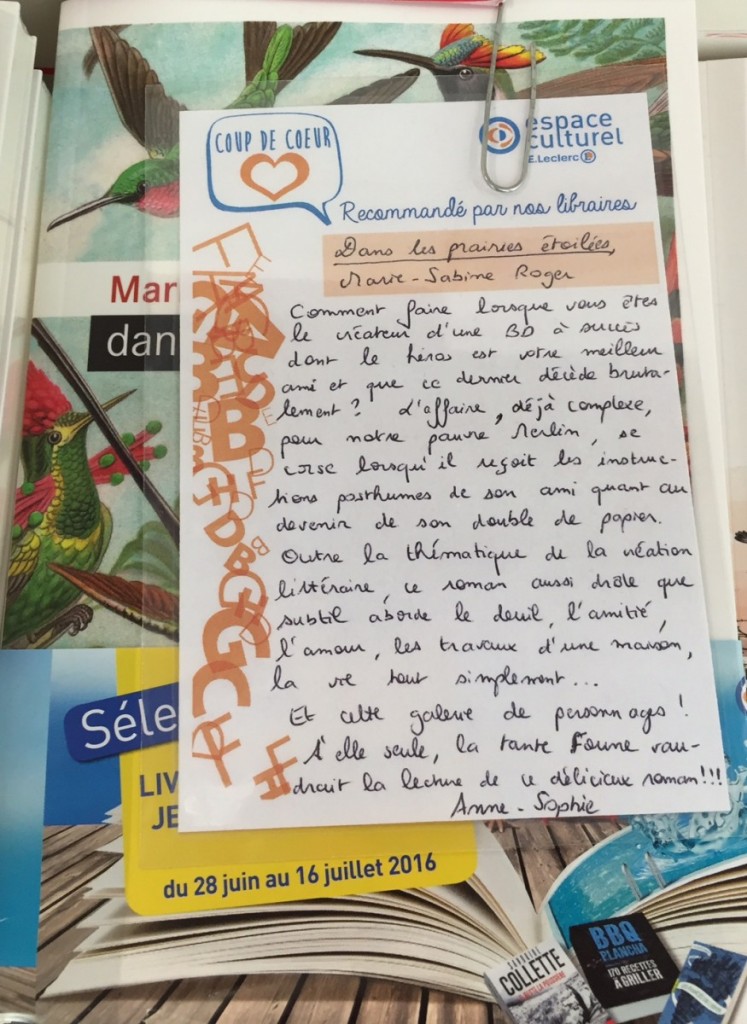 COUP DE COEUR
espace
culturel
E.Leclerc
Recommandé par nos libraires
Dans les prairies étoilées,
Marie-Sabine Roger
Comment faire lorsque vous êtes
le créateur d'une BD à succès
dont le héros est votre meilleur
ami et que ce dernier décède bruta-
lement ? L'affaire, déjà complexe,
pour notre pauvre Merlin, se
corse lorsqu'il reçoit les instruc-
tions posthumes de son ami quant au
devenir de son double de papier.
Outre la thématique de la création
littéraire, ce roman aussi drôle que
subtil aborde le deuil, l'amitié,
l'amour, les travaux d'une maison,
la vie tout simplement...
Et cette galerie de personnages !
A elle seule, la tante Foune vau-
drait la lecture de ce délicieux roman !!!
Anne-Sophie
Mar
dan
Séle
LIV
JE
du 28 juin au 16 juillet 2016
COLLETTE
BBQ
PLANCHA
170 RECETTES
À GRILLER